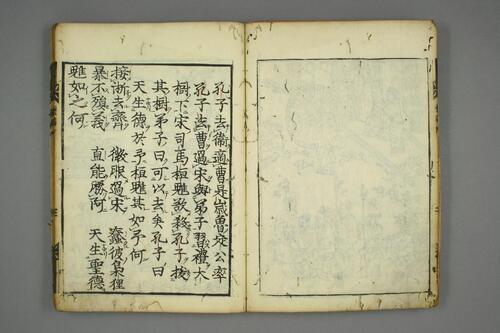 孔子去衛適曹是歳魯定公卒
孔子去曹過宋與弟子習禮大
樹下宋司馬桓魋欲殺孔子拔
其樹弟子曰可以去矣孔子曰
天生德於予桓魋其如予何
接淅去齊　微服過宋　蠢彼梟狸
暴不殞義　直能勝阿　天生聖德
魋如之何